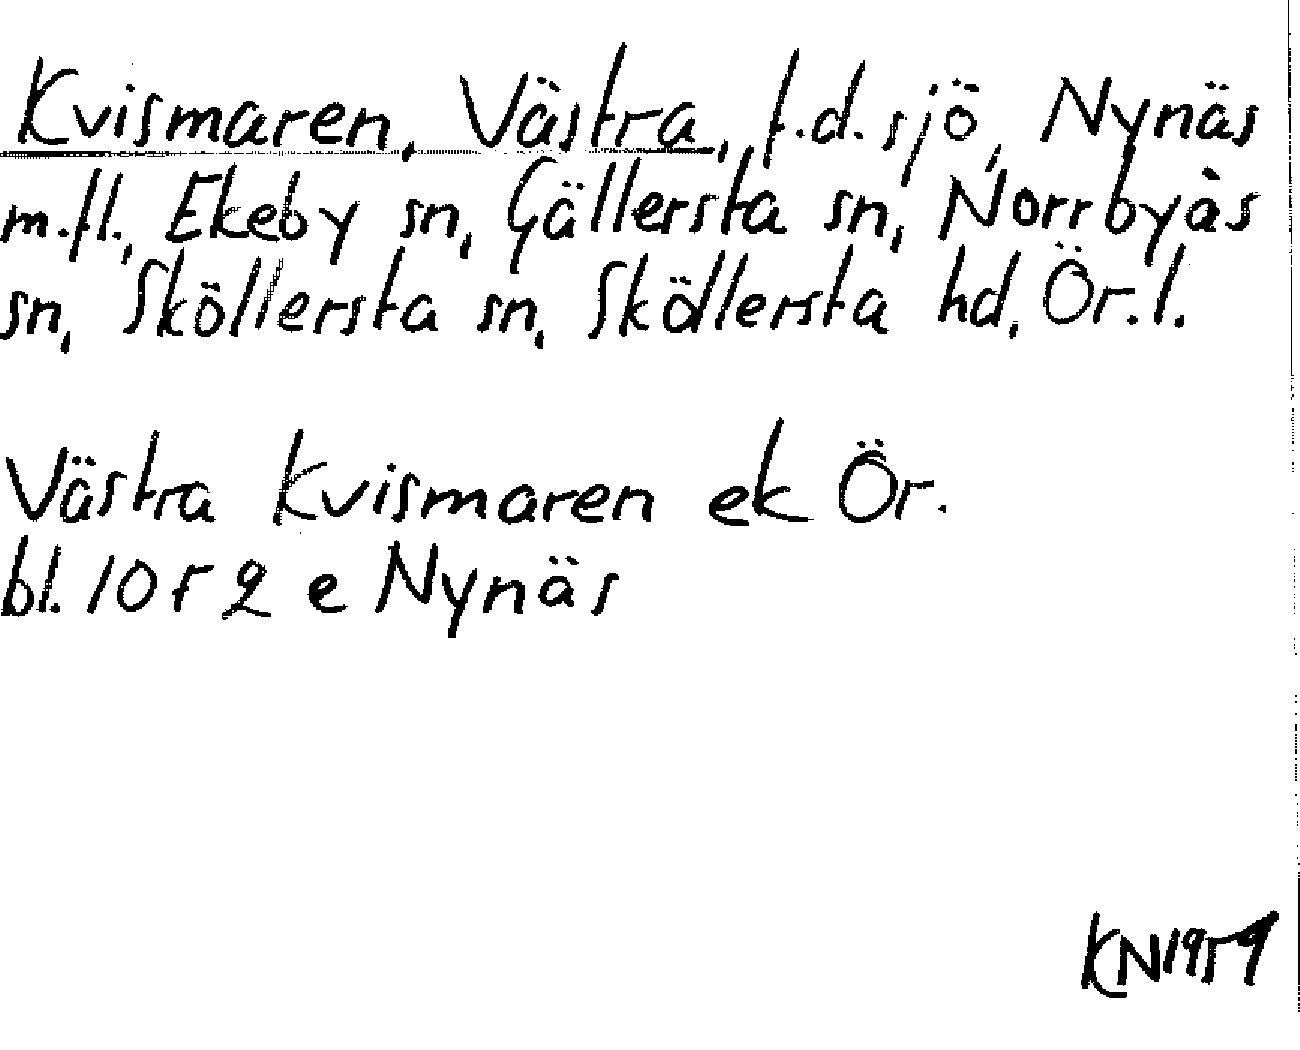 Kvismaren, Västra, f.d. sjö, Nynäs
m.fl., Ekeby sn, Gällersta sn, Norrbyås
sn, Sköllersta sn, Sköllersta hd, Ör. l.
Västra Kvismaren ek Ör.
bl. 10 f 2 e Nynäs
KN 1959